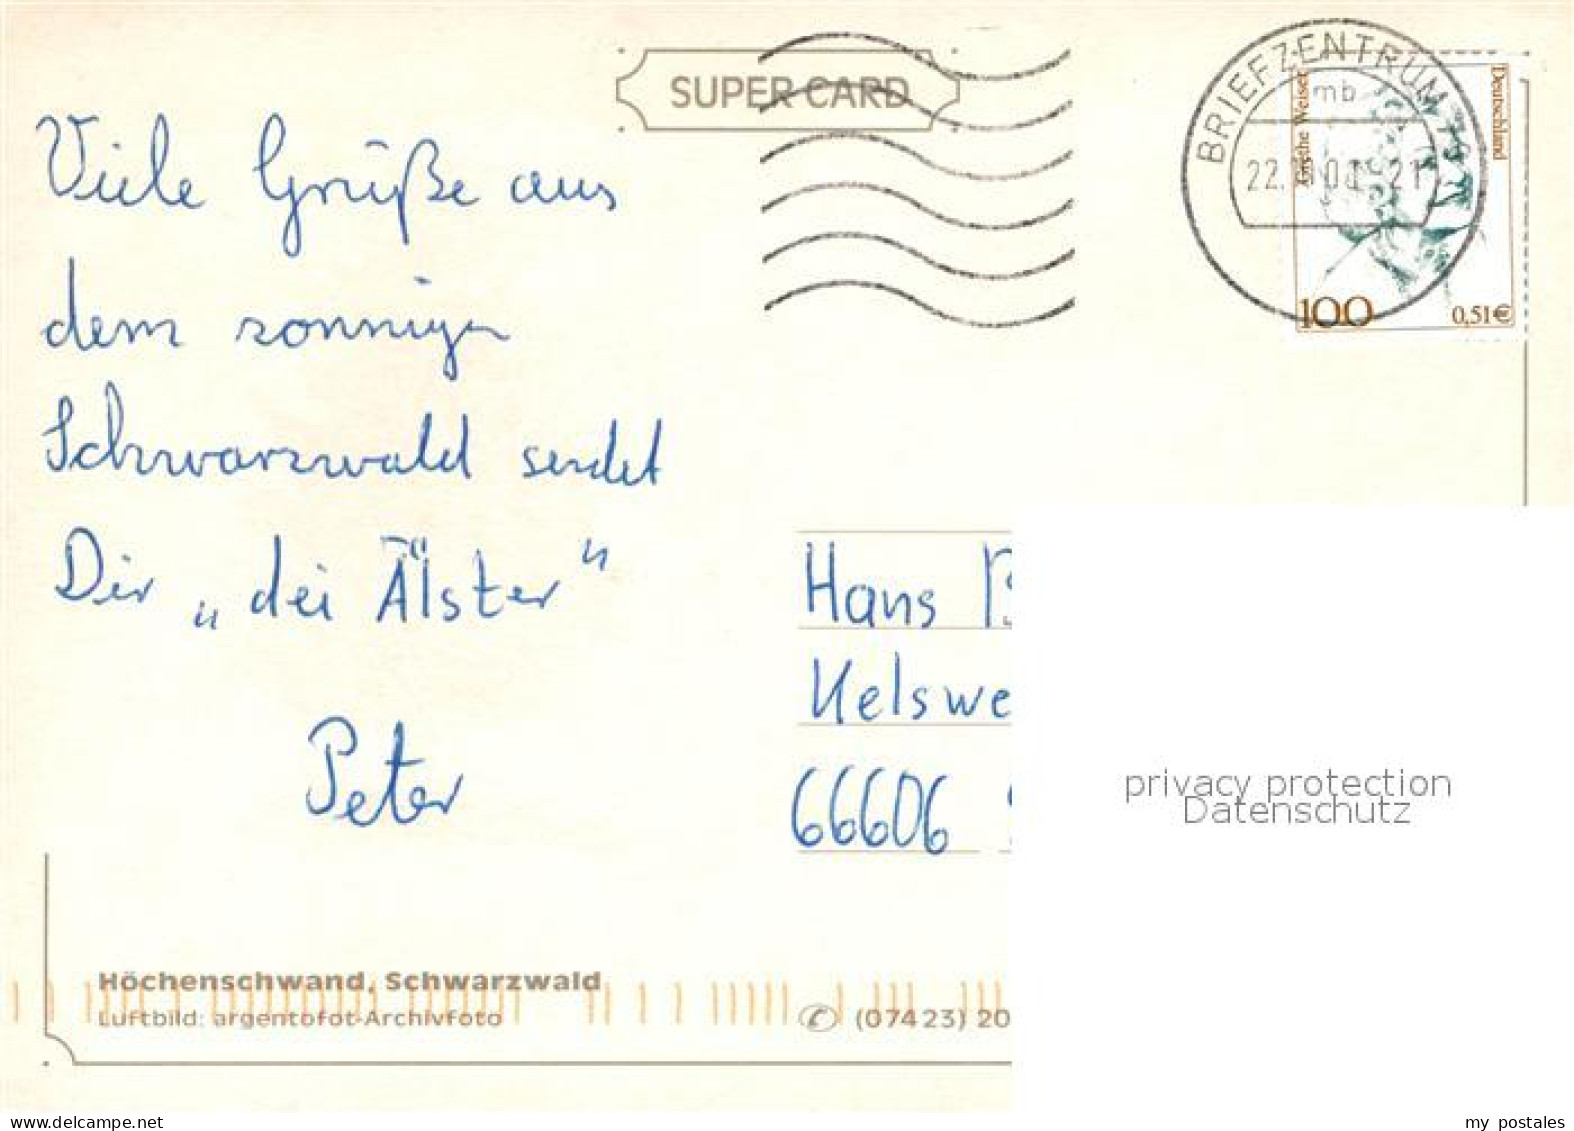 SUPER CARD
BRIEFZENTRUM
mb
22.
21
Grethe Weiser
Deutschland
100
0,51€
Viele Grüße aus
dem sonnigen
Schwarzwald sendet
Dir „dei Älster“
Peter
Hans
66606
privacy protection
Datenschutz
Höchenschwand, Schwarzwald
Luftbild: argentofot-Archivfoto
✆ (07423) 20
delcampe.net
my_postales